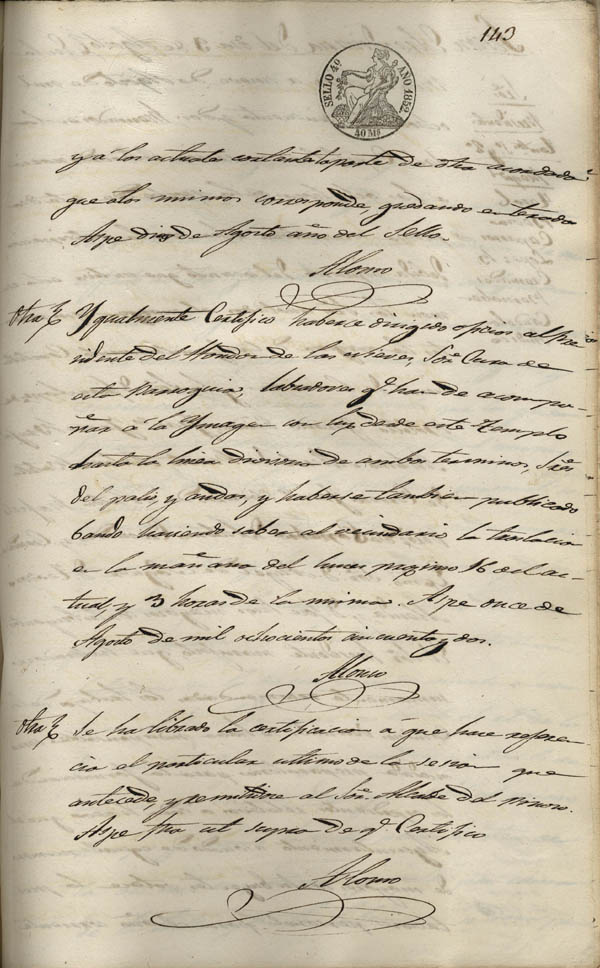 143
SELLO 4º AÑO 1852.
40 Ms
y a los actuales la parte de otra
que a los mismos corresponde, quedando enterados
Aspe diez de Agosto año del Sello.
Alonso
Otra Ygualmente Certifico haberse dirigido oficios al Pre
sidente del de las nieves, Sor. Cura de
esta Parroquia, labradores q.e han de acompa
ñar a la Ymagen con luz desde este Templo
hasta la linea divisoria de ambos terminos, Sres.
del palio, y andas, y haberse tambien publicado
bando haciendo saber al vecindario la traslacion
en la mañana del lunes proximo 16 del ac-
tual, y 3 horas de la misma. Aspe once de
Agosto de mil ochocientos cincuenta y dos.
Alonso
Otra Se ha librado la certificacion á que hace referen
cia el particular ultimo de la sesion que
antecede, y remitidose al Sor. Alcalde del Pinoso.
Aspe fha ut supra de q.e Certifico
Alonso